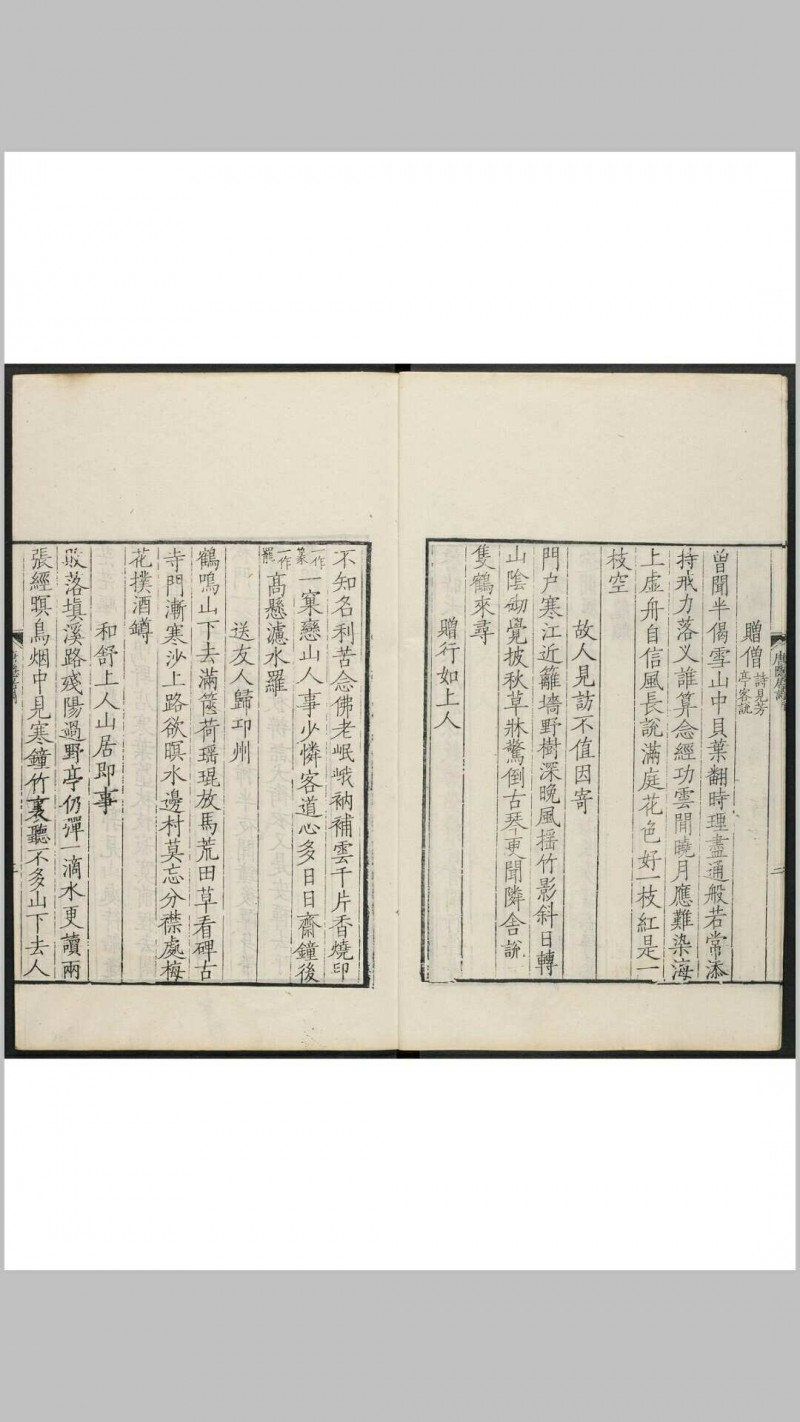 贈僧詩見芳亭客說
曾聞半偈雪山中貝葉翻時理盡通般若常添
持戒力落义誰算念經功雲閒曉月應難染海
上虛舟自信風長說滿庭花色好一枝紅是一
枝空
故人見訪不值因寄
門户寒江近籬墻野樹深晚風搖竹影斜日轉
山陰砌覺披秋草牀驚倒古琴更聞隣舍說
隻鶴來尋
贈行如上人
不知名利苦念佛老岷峨衲補雲千片香燒印
一作篆一窠戀山人事少憐客道心多日日齋鐘後
一作罷高懸濾水羅
送友人歸邛州
鶴鳴山下去滿篋荷瑶琨放馬荒田草看碑古
寺門漸寒沙上路欲暝水邊村莫忘分襟處梅
花撲酒鐏
和舒上人山居即事
敗落填溪路殘陽過野亭仍彈一滴水更讀兩
張經暝鳥烟中見寒鐘竹裏聽不多山下去人